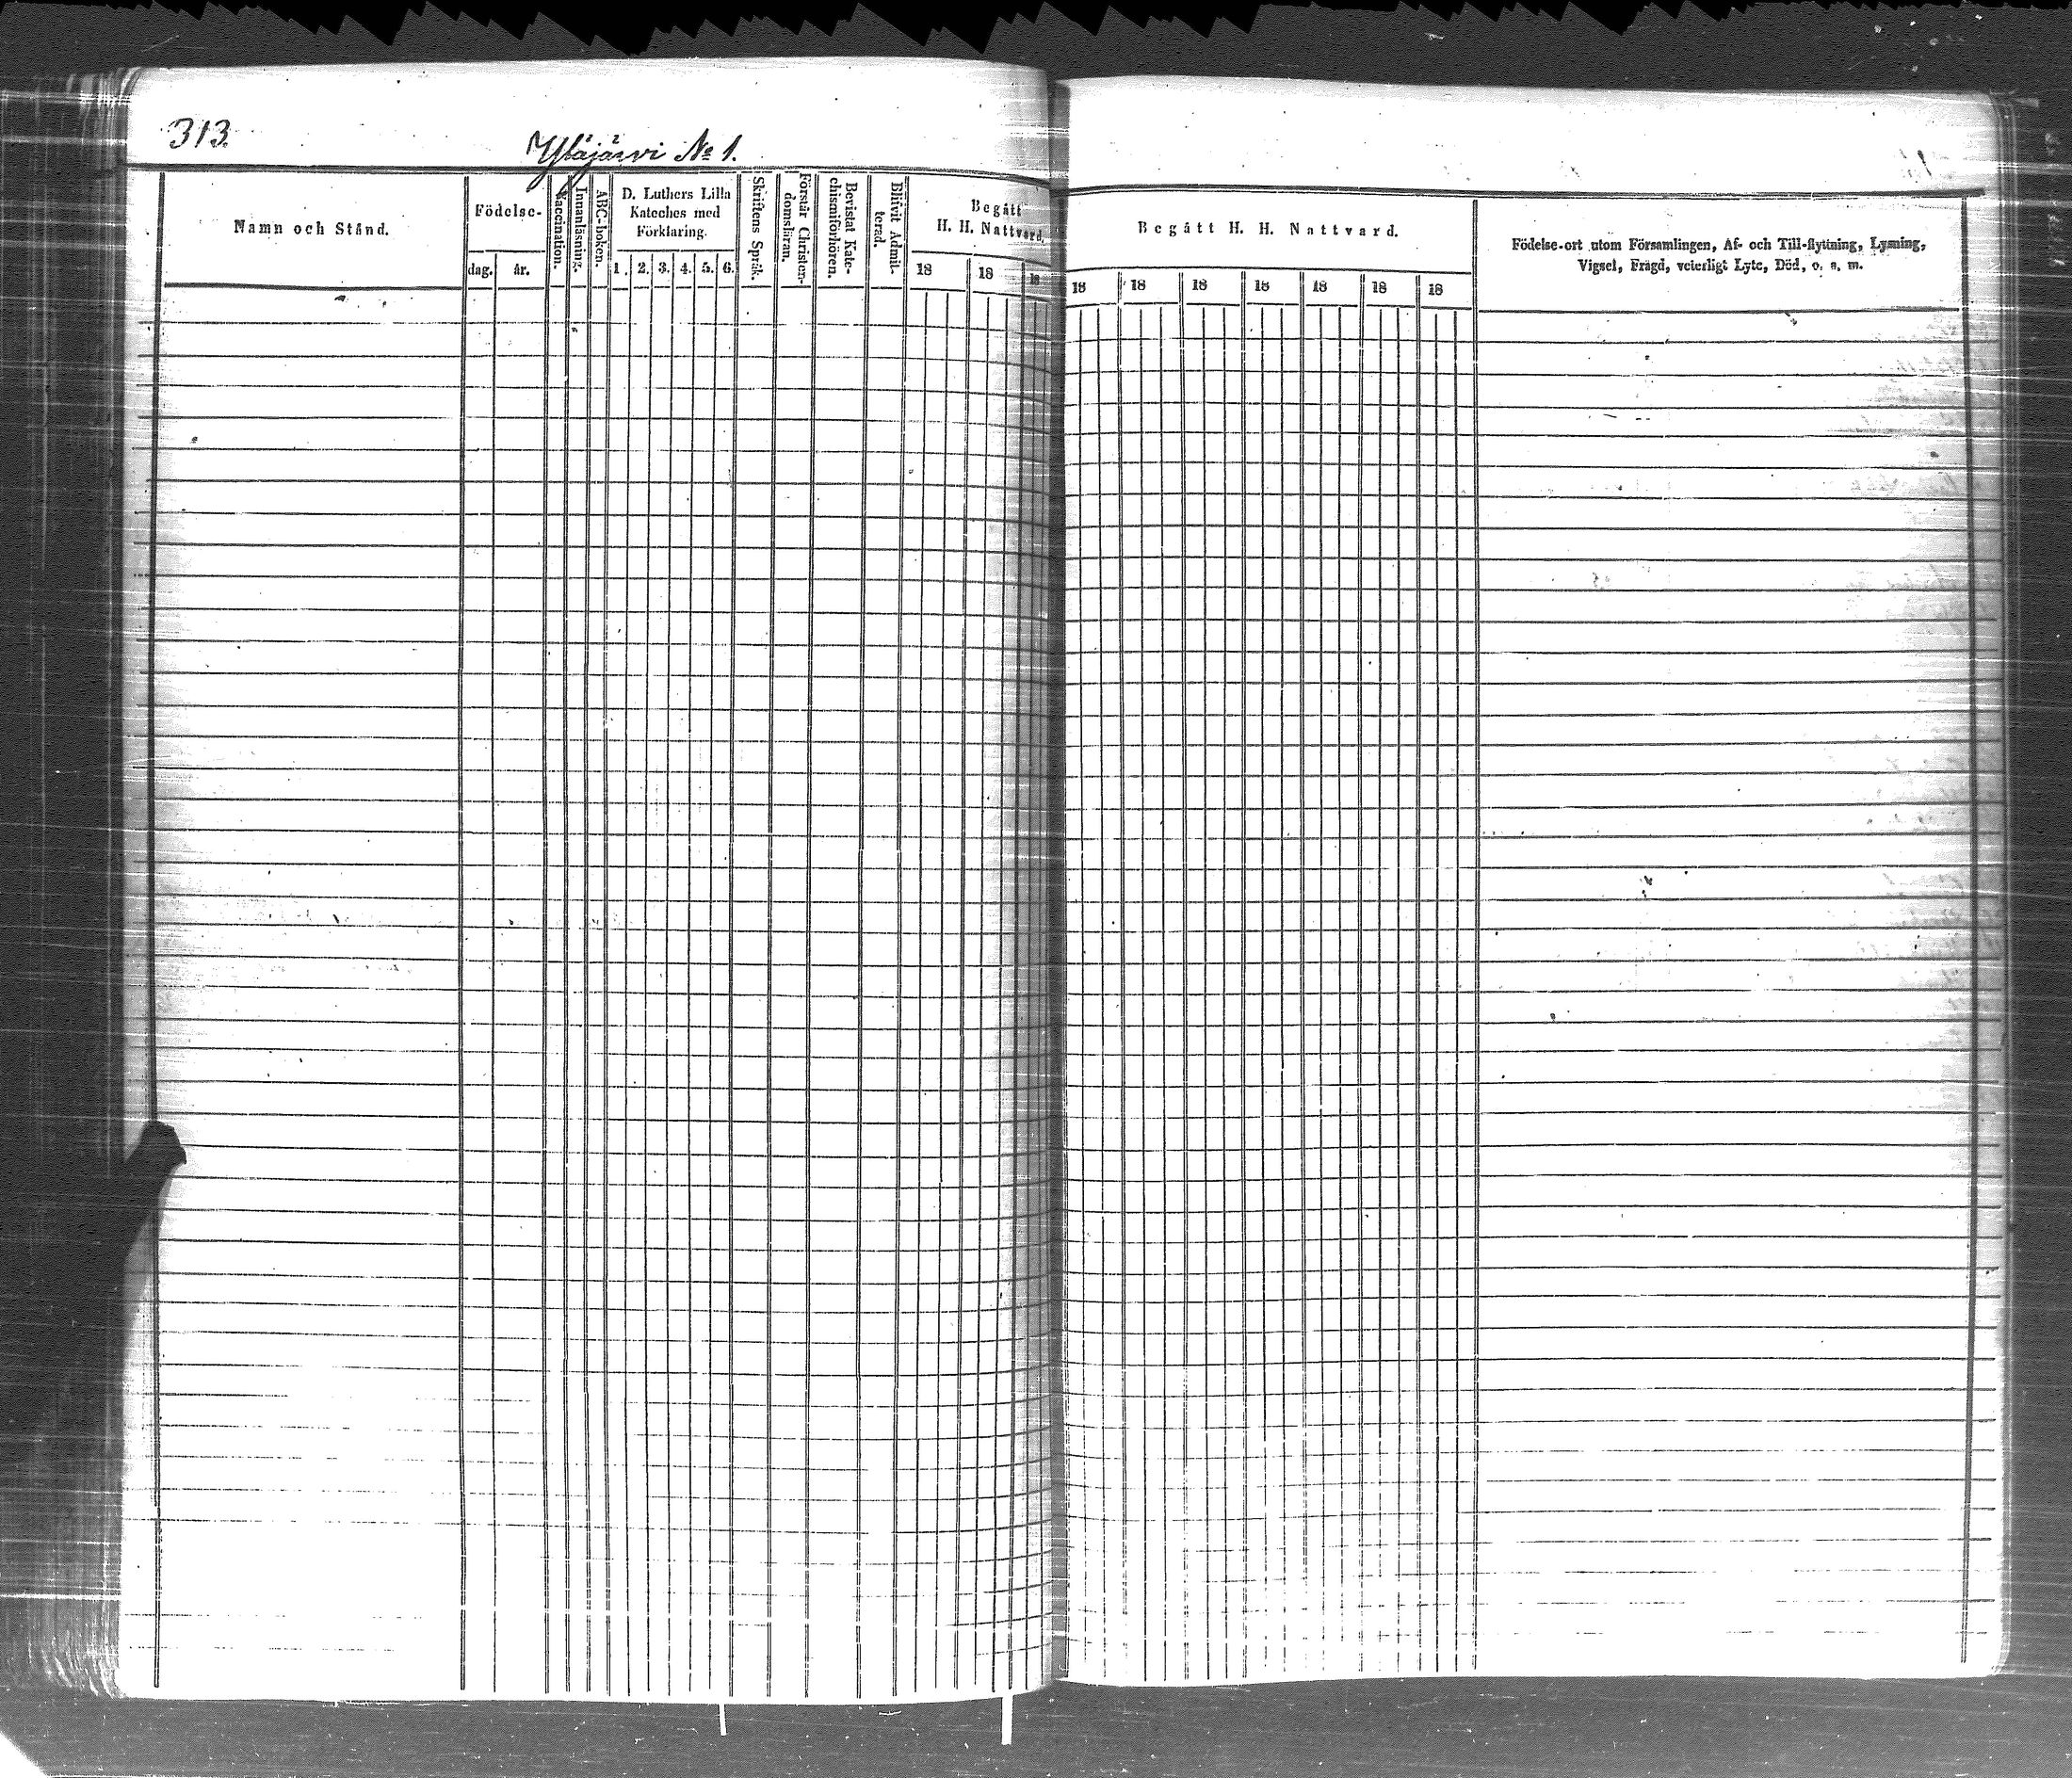 313.
Yläjärvi No 1.
Namn och Stånd.
Födelse-
dag. år.
Vaccination.
Innanläsning.
ABC-boken.
D. Luthers Lilla
Kateches med
Förklaring.
1. 2. 3. 4. 5. 6.
Skriftens Språk.
Förstår Christen-
domsläran.
Bevistat Kate-
chismiförhören.
Blifvit Admit-
terad.
Begått
H. H. Nattvard.
18 18 18
Begått H. H. Nattvard.
18 18 18 18 18 18 18
Födelse-ort utom Församlingen, Af- och Till-flyttning, Lysning,
Vigsel, Frägd, veterligt Lyte, Död, o. s. m.